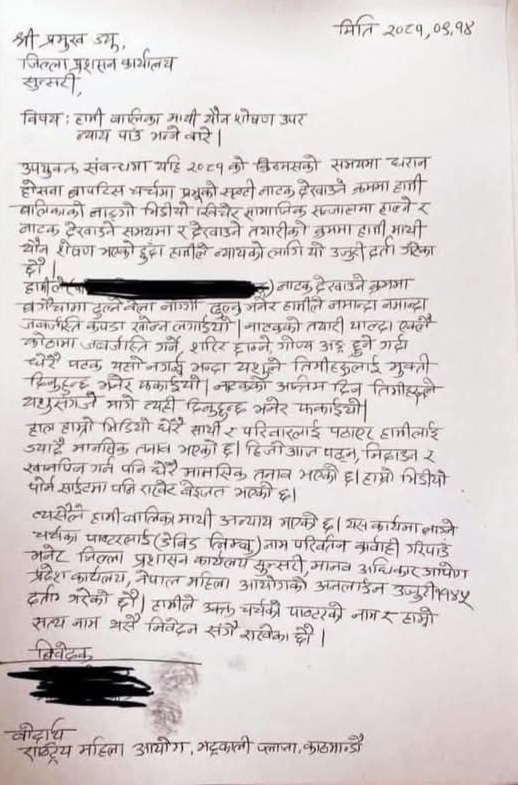 मिति २०८१,०९,१४
श्री प्रमुख ज्यू,
जिल्ला प्रशासन कार्यालय
सुन्सरी,
विषय: हामी बालिका माथी यौन शोषण उपर
न्याय पाउँ भन्ने बारे।
उपयुक्त संवन्धमा यहि २०८१ को क्रिसमसको समयमा धरान
होसना ब्राप्टिस चर्चमा प्रभुको सृष्टी नाटक देखाउने क्रममा हामी
बालिकाको नाङ्गो भिडीयो खिचेर सामाजिक सञ्जालमा हाल्ने र
नाटक देखाउने समयमा र देखाउने तयारीको क्रममा हामी माथी
यौन शोषण भएको हुँदा हामीले न्यायको लागि यो उजुरी दर्ता गरेका
छौं।
हामीले ( ) नाटक देखाउने क्रममा
बगैंचामा डुल्ने बेला नाग्गो डुल्नु भनेर हामीले नमान्दा नमान्दा
जबर्जस्ति कपडा खोल्न लगाईयो। नाटकको तयारी गर्दा एक्लै
कोठामा जबर्जस्ति गर्ने शरिर छाम्ने गोप्य अङ्ग छुने गर्दा
धेरै पटक यसो नगर्नु भन्दा यशुले तिमीहरूलाई मुक्ती
दिनुहुन्छ भनेर फकाईयो। नाटकको अन्तिम दिन तिमीहरूले
यशुसंग जे मागे त्यही दिनुहुन्छ भनेर फकाईयो।
हाल हाम्रो भिडियो धेरै साथी र परिवारलाई पठाएर हामीलाई
ज्यादै मानसिक तनाव भएको छ। हिजो आज पढ्न, निदाउन र
खानपिन गर्न पनि धेरै मानसिक तनाव भएको छ। हाम्रो भिडीयो
पोर्न साईटमा पनि राखेर बेइजत भएको छ।
त्यसैले हामी बालिका माथी अन्याय भएको छ। यस कार्यमा लाग्ने
चर्चका पाष्टरलाई (डेबिड लिम्बु) नाम परिवर्तन कार्वाही गरिपाउँ
भनेर जिल्ला प्रशासन कार्यालय सुन्सरी, मानव अधिकार आयोग
प्रदेश कार्यालय, नेपाल महिला आयोगको अनलाईन उजुरी ११४५
दर्ता गरेको छौं। हामीले उक्त चर्चको पाष्टरको नाम र हाम्रो
सत्य नाम यसै निवेदन संगै राखेका छौं।
निवेदक
बोदार्थ
राष्ट्रिय महिला आयोग, भद्रकाली प्लाजा, काठमान्डौ